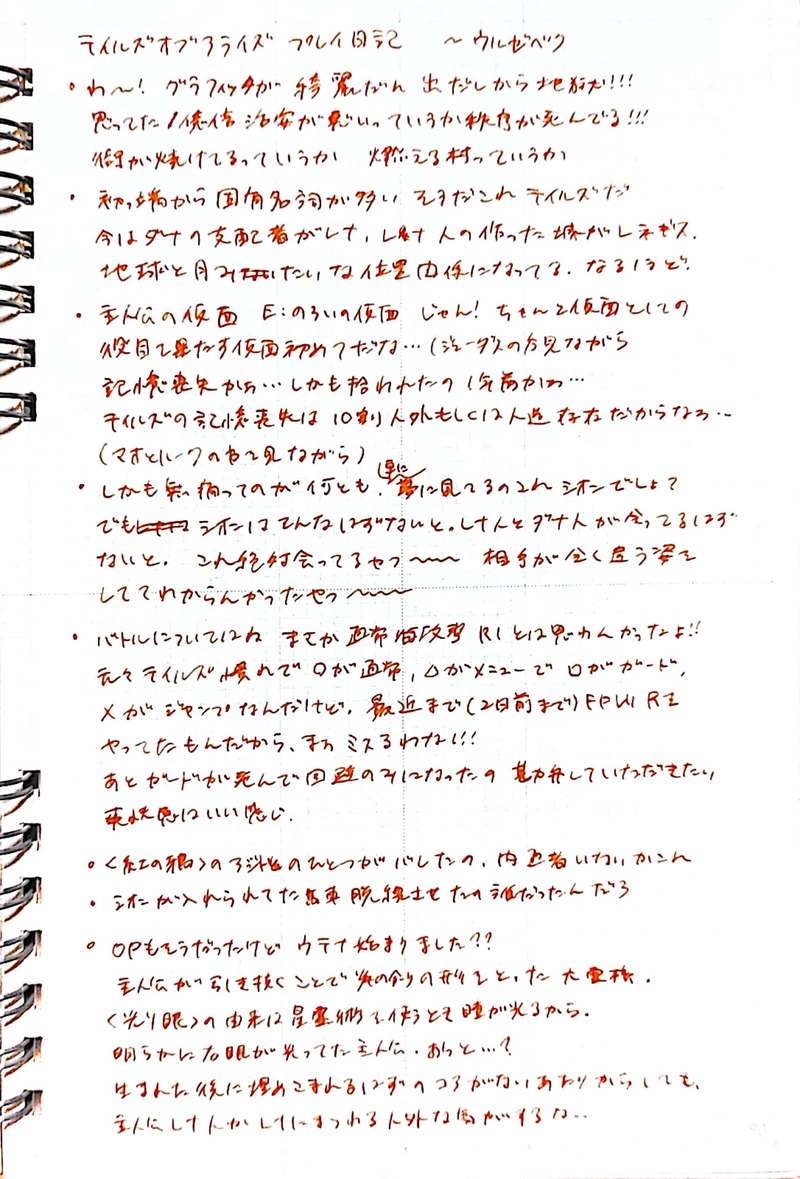 テイルズオブアライズ プレイ日記 〜ウルゼベク
・わ〜! グラフィックが 綺麗だね 出だしから地獄!!!
思ってた1億倍治安が悪いっていうか秩序が死んでる!!!
街が焼けてるっていうか 燃える村っていうか
・初っ端から 固有名詞が多い そうだこれ テイルズだ
今はダナの支配者がレナ, レナ人の作った城がレネギス.
地球と月みたいな位置関係になってる. なるほど.
・主人公の仮面 E:のろいの仮面 じゃん! ちゃんと仮面としての
役目を果たす仮面初めてだな…(ジューダスの方見ながら
記憶喪失かぁ…しかも拾われたの1年前かぁ…
テイルズの記憶喪失は10割人外もしくは人造存在だからなぁ…
(マオとルークの方を見ながら)
・しかも無痛ってのが何とも. 夢に見てるのこれ シオンでしょ?
でも シオンはそんなはずないと. レナ人とダナ人が会ってるはず
ないと. これ絶対会ってるやつ〜〜〜 相手が全く違う姿を
しててわからんかったやつ〜〜〜
・バトルについてはね まさか 通常攻撃 R1とは思わんかったよ!!
元々テイルズ慣れで ○が通常, △がメニューで □がガード,
×が ジャンプなんだけど, 最近まで(2日前まで)FPWRを
やってたもんだから、まぁ ミスるわな!!!
あと ガードが死んで回避のみになったの 勘弁していただきたい
爽快感はいい感じ.
・〈紅の鴉〉のアジトのひとつがバレたの, 内通者いないかこれ
・シオンが入れられてた 列車 脱線させたの誰だったんだろ
・OPもそうだったけど ウテナ始まりました??
主人公が引き抜くことで炎の剣の形をとった 大霊核.
〈光り眼〉の由来は星霊術を使うとき瞳が光るから.
明らかに右眼が光ってた主人公. おっと…?
生まれた後に埋めこまれるはずのコアがないあたりからしても,
主人公レナ人かレナにまつわる人外な気がするな…